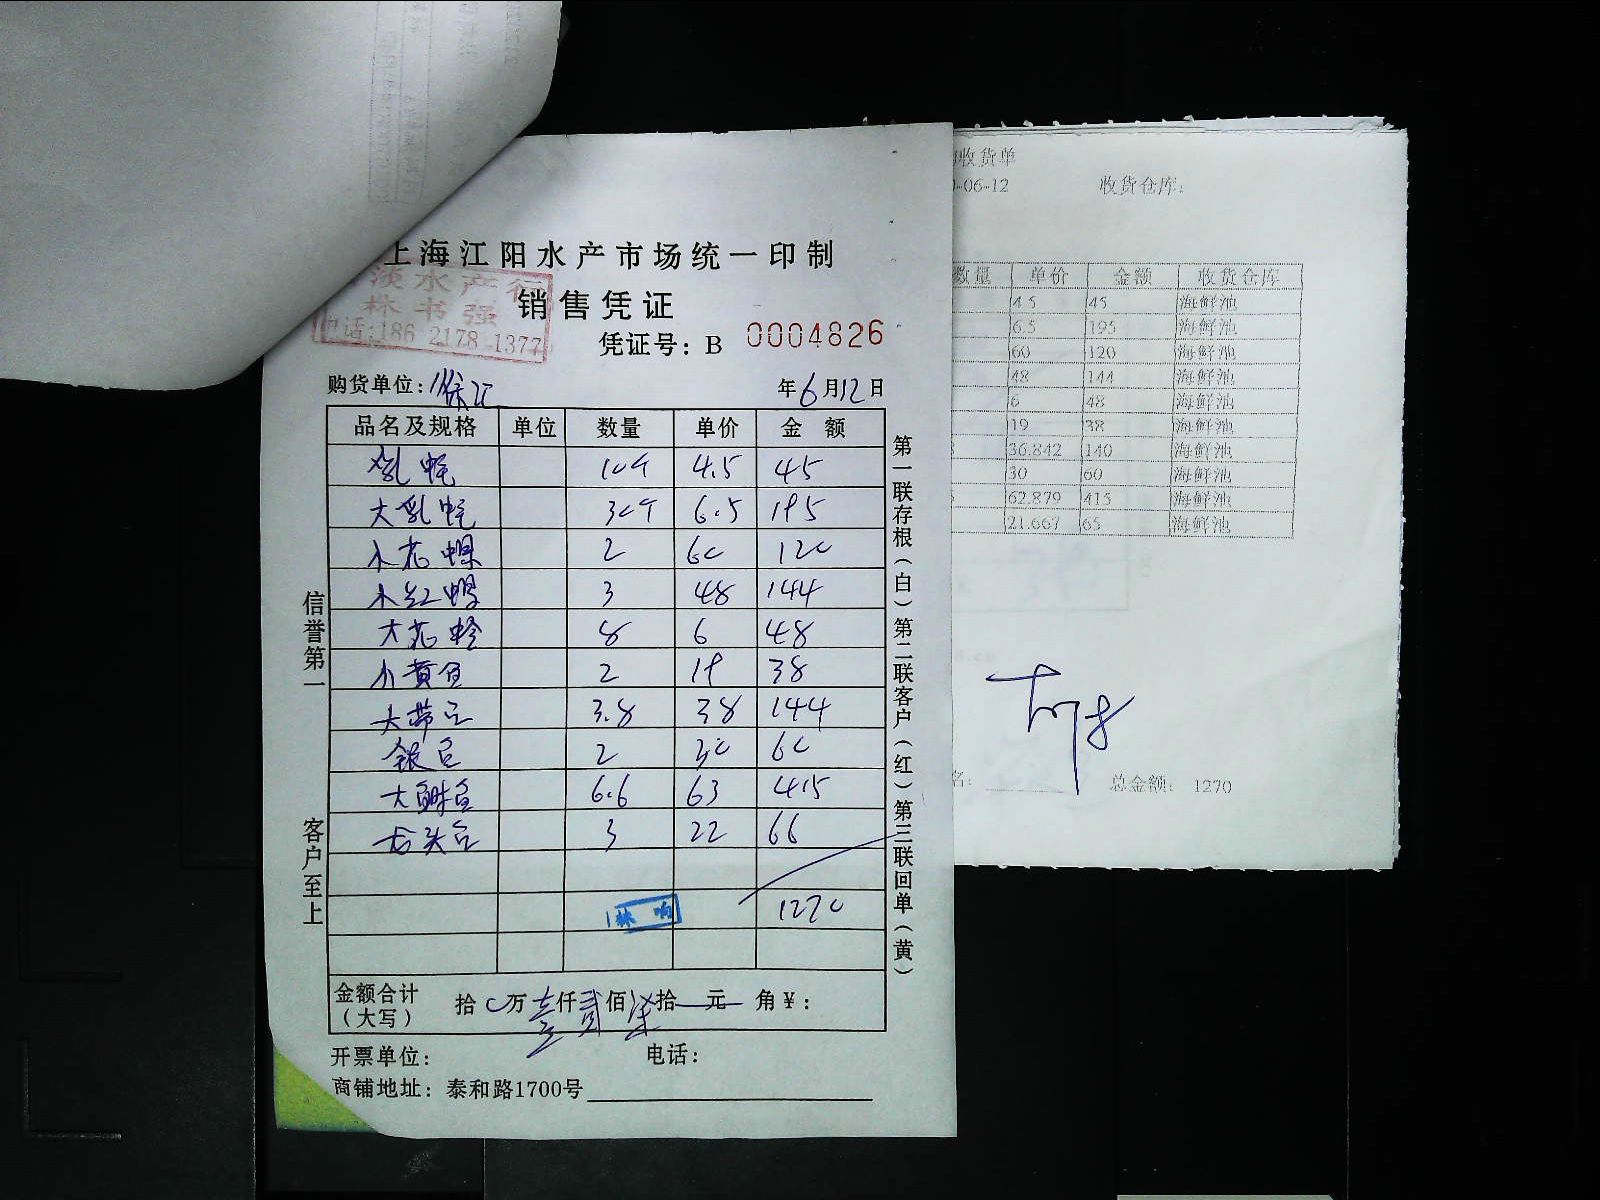 上海江阳水产市场统一印制
淡水产行
林书强
电话:186 2178 1377
销售凭证
凭证号: B 0004826
购货单位: 徐汇 年6月12日
品名及规格 单位 数量 单价 金额
乳蚝 10个 4.5 45
大乳蚝 30个 6.5 195
小花螺 2 60 120
小红 3 48 144
大花蛤 8 6 48
小黄鱼 2 19 38
大带鱼 3.8 38 144
银鱼 2 30 60
大 鱼 6.6 63 415
龙头鱼 3 22 66
1270
金额合计(大写) 拾0万壹仟贰佰柒拾 元 角¥:
开票单位: 电话:
商铺地址: 泰和路1700号
信誉第一
客户至上
第一联存根(白)第二联客户(红)第三联回单(黄)
收货单
-06-12 收货仓库:
数量 单价 金额 收货仓库
4.5 45 海鲜池
6.5 195 海鲜池
60 120 海鲜池
48 144 海鲜池
6 48 海鲜池
19 38 海鲜池
36.842 140 海鲜池
30 60 海鲜池
62.879 415 海鲜池
21.667 65 海鲜池
名: 总金额: 1270